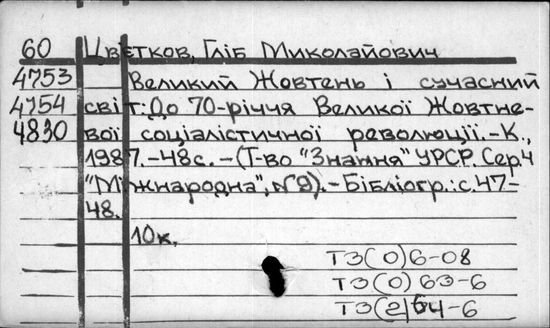 60 Цвєтков, Гліб Миколайович
4753 Великий Жовтень і сучасний
4754 світ: До 70-річчя Великої Жовтне-
4830 вої соціалістичної революції.-К.,
1987.-48с.-(Т-во "Знання" УРСР. Сер.4
"Міжнародна", №9).-Бібліогр.: с.47-
48.
10к.
ТЗ(0)6-08
ТЗ(0)63-6
ТЗ(2)64-6